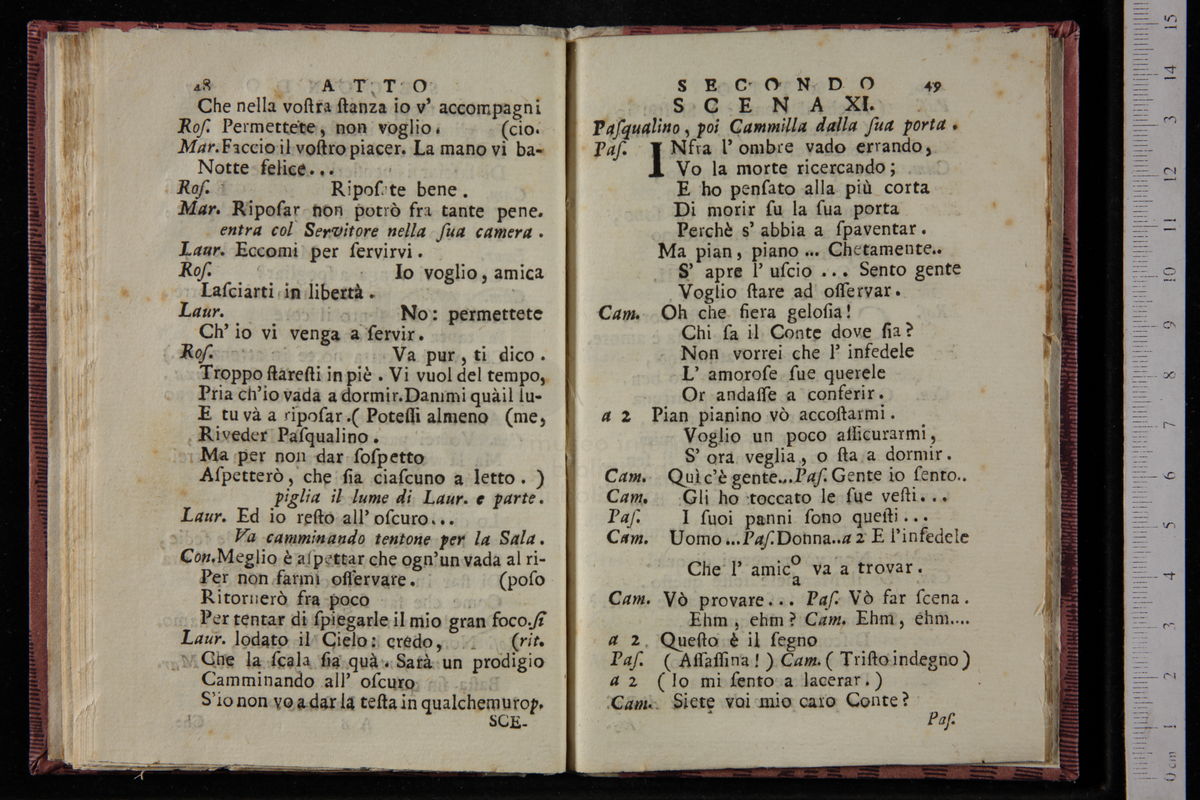 48 ATTO
Che nella voſtra ſtanza io v' accompagni
Roſ. Permettete, non voglio. (cio.
Mar. Faccio il voſtro piacer. La mano vi ba-
Notte felice...
Roſ. Ripoſate bene.
Mar. Ripoſar non potrò fra tante pene.
entra col Servitore nella ſua camera.
Laur. Eccomi per ſervirvi.
Roſ. Io voglio, amica
Laſciarti in libertà.
Laur. No: permettete
Ch' io vi venga a ſervir.
Roſ. Va pur, ti dico.
Troppo ſtareſti in piè. Vi vuol del tempo,
Pria ch'io vada a dormir. Dammi quà il lu-
E tu và a ripoſar. ( Poteſſi almeno (me,
Riveder Paſqualino.
Ma per non dar ſoſpetto
Aſpetterò, che ſia ciaſcuno a letto. )
piglia il lume di Laur. e parte.
Laur. Ed io reſto all' oſcuro...
Va camminando tentone per la Sala.
Con. Meglio è aſpettar che ogn'un vada al ri-
Per non farmi oſſervare. (poſo
Ritornerò fra poco
Per tentar di ſpiegarle il mio gran foco. ſi
Laur. lodato il Cielo: credo, (rit.
Che la ſcala ſia quà. Sarà un prodigio
Camminando all' oſcuro
S'io non vo a dar la teſta in qualche muro p.
SCE-
SECONDO 49
SCENA XI.
Paſqualino, poi Cammilla dalla ſua porta.
Paſ. INfra l' ombre vado errando,
Vo la morte ricercando;
E ho penſato alla più corta
Di morir ſu la ſua porta
Perchè s' abbia a ſpaventar.
Ma pian, piano... Chetamente..
S' apre l' uſcio... Sento gente
Voglio ſtare ad oſſervar.
Cam. Oh che fiera geloſia!
Chi ſa il Conte dove ſia?
Non vorrei che l' infedele
L' amoroſe ſue querele
Or andaſſe a conferir.
a 2 Pian pianino vò accoſtarmi.
Voglio un poco aſſicurarmi,
S' ora veglia, o ſta a dormir.
Cam. Quì c'è gente... Paſ. Gente io ſento..
Cam. Gli ho toccato le ſue veſti...
Paſ. I ſuoi panni ſono queſti...
Cam. Uomo... Paſ. Donna.. a 2 E l'infedele
Che l' amic o/a va a trovar.
Cam. Vò provare... Paſ. Vò far ſcena.
Ehm, ehm? Cam. Ehm, ehm....
a 2 Queſto è il ſegno
Paſ. ( Aſſaſſina! ) Cam. ( Triſto indegno )
a 2 ( Io mi ſento a lacerar. )
Cam. Siete voi mio caro Conte?
Paſ.